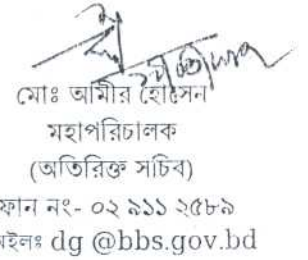 মোঃ আমীর হোসেন
মহাপরিচালক
(অতিরিক্ত সচিব)
ফোন নং- ০২ ৯১১ ২৫৮৯
মেইলঃ dg @bbs.gov.bd